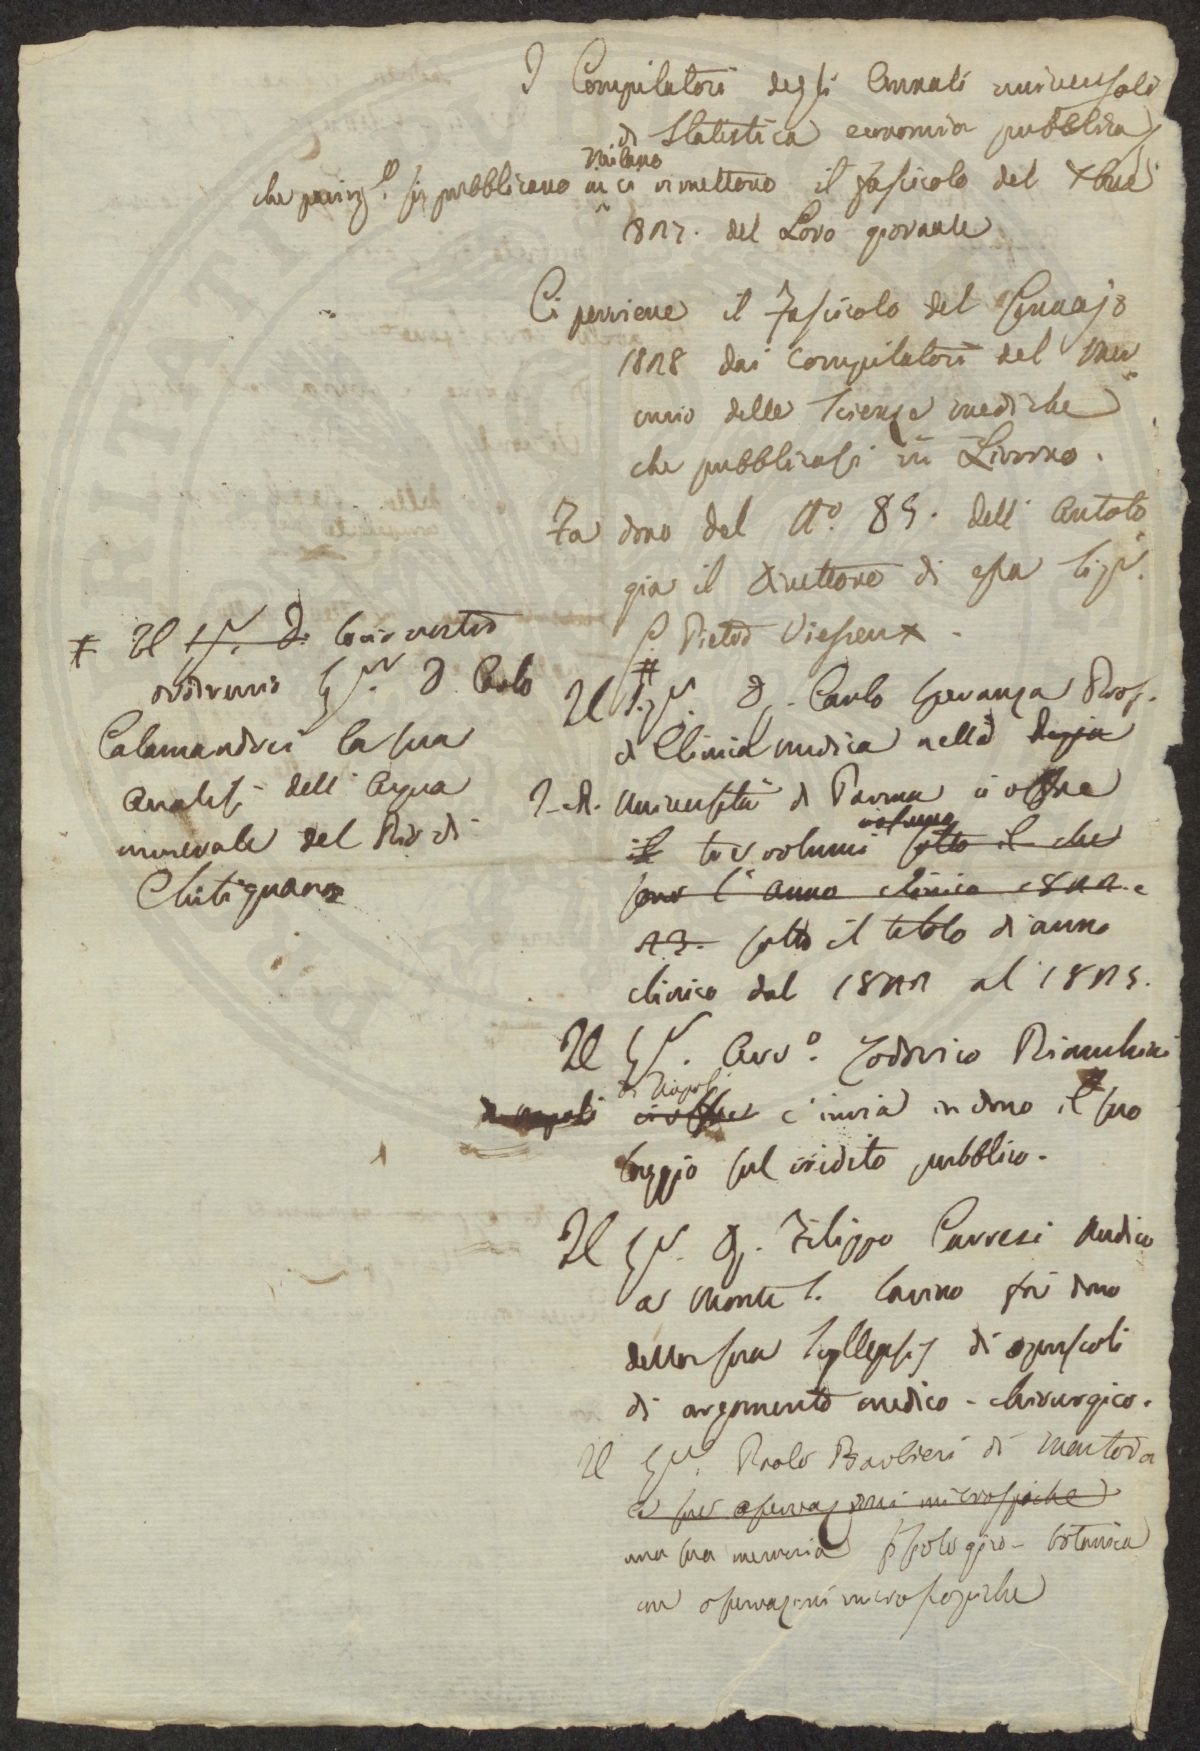 I Compilatori degli Annali universali
di Statistica economia pubblica
che si pubblicano in Milano ci rimettono il fascicolo del Xbre
1827. del Loro giornale
Ci perviene il Fascicolo del Gennajo
1828 dai Compilatori del
delle Scienze mediche
che pubblicasi in Livorno.
Fa dono del N.o 85. dell' Antolo
gia il Direttore di essa Sigr.
Pietro Viesseux.
# Il Sigr. D. Carlo Speranza Prof.
di Clinica medica nella Regia
I. R. Università di Parma ci offre
il tre volumi volume sotto il che
per l'anno clinico 1822. e
23. sotto il titolo di anno
clinico dal 1822 al 1825.
Il Sigr. Avvo. Lodovico Bianchini
di Napoli di Napoli ci offre c'invia in dono il suo
Saggio sul credito pubblico.
Il Sigr. D. Filippo Carresi Medico
a Monte S. Savino fa dono
della sua Syllepsis di opuscoli
di argomento medico-chirurgico.
Il Sigr. Paolo Barbieri di Mantova
e sue osservazioni microspiche
una sua memoria fisiologico-botanica
con osservazioni microscopiche
# Il Sigr. D. Socio nostro
ordinario Sigr. D. Carlo
Calamandrei la sua
Analisi dell' Acqua
minerale del Rio di
Chitignano